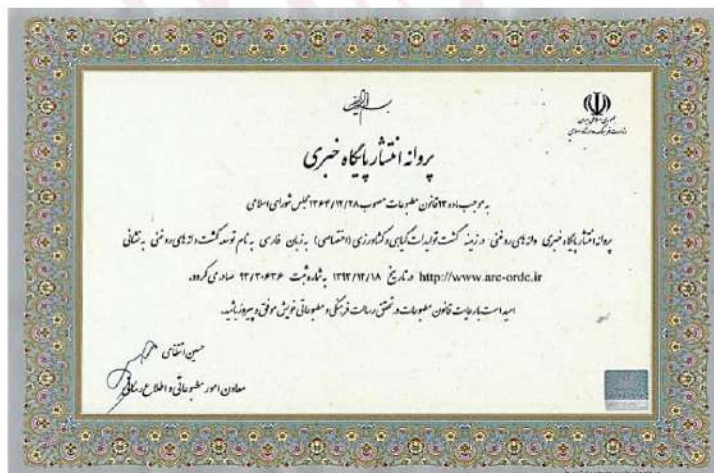 بسمه تعالی
جمهوری اسلامی ایران
وزارت فرهنگ و ارشاد اسلامی
پروانه انتشار پایگاه خبری
به موجب ماده ۱۳ قانون مطبوعات مصوب ۱۳۶۴/۱۲/۲۸ مجلس شورای اسلامی
پروانه انتشار پایگاه خبری دانه های روغنی در زمینه کشت تولیدات گیاهی و کشاورزی (اختصاصی) به زبان فارسی به نام توسعه کشت دانه های روغنی به نشانی
http://www.arc-ordc.ir در تاریخ ۱۳۹۲/۱۲/۱۸ به شماره ثبت ۹۲/۳۰۶۳۶ صادر می گردد.
امید است با رعایت قانون مطبوعات در تحقق رسالت فرهنگی و مطبوعاتی خویش موفق و پیروز باشید.
حسین انتظامی
معاون امور مطبوعاتی و اطلاع رسانی